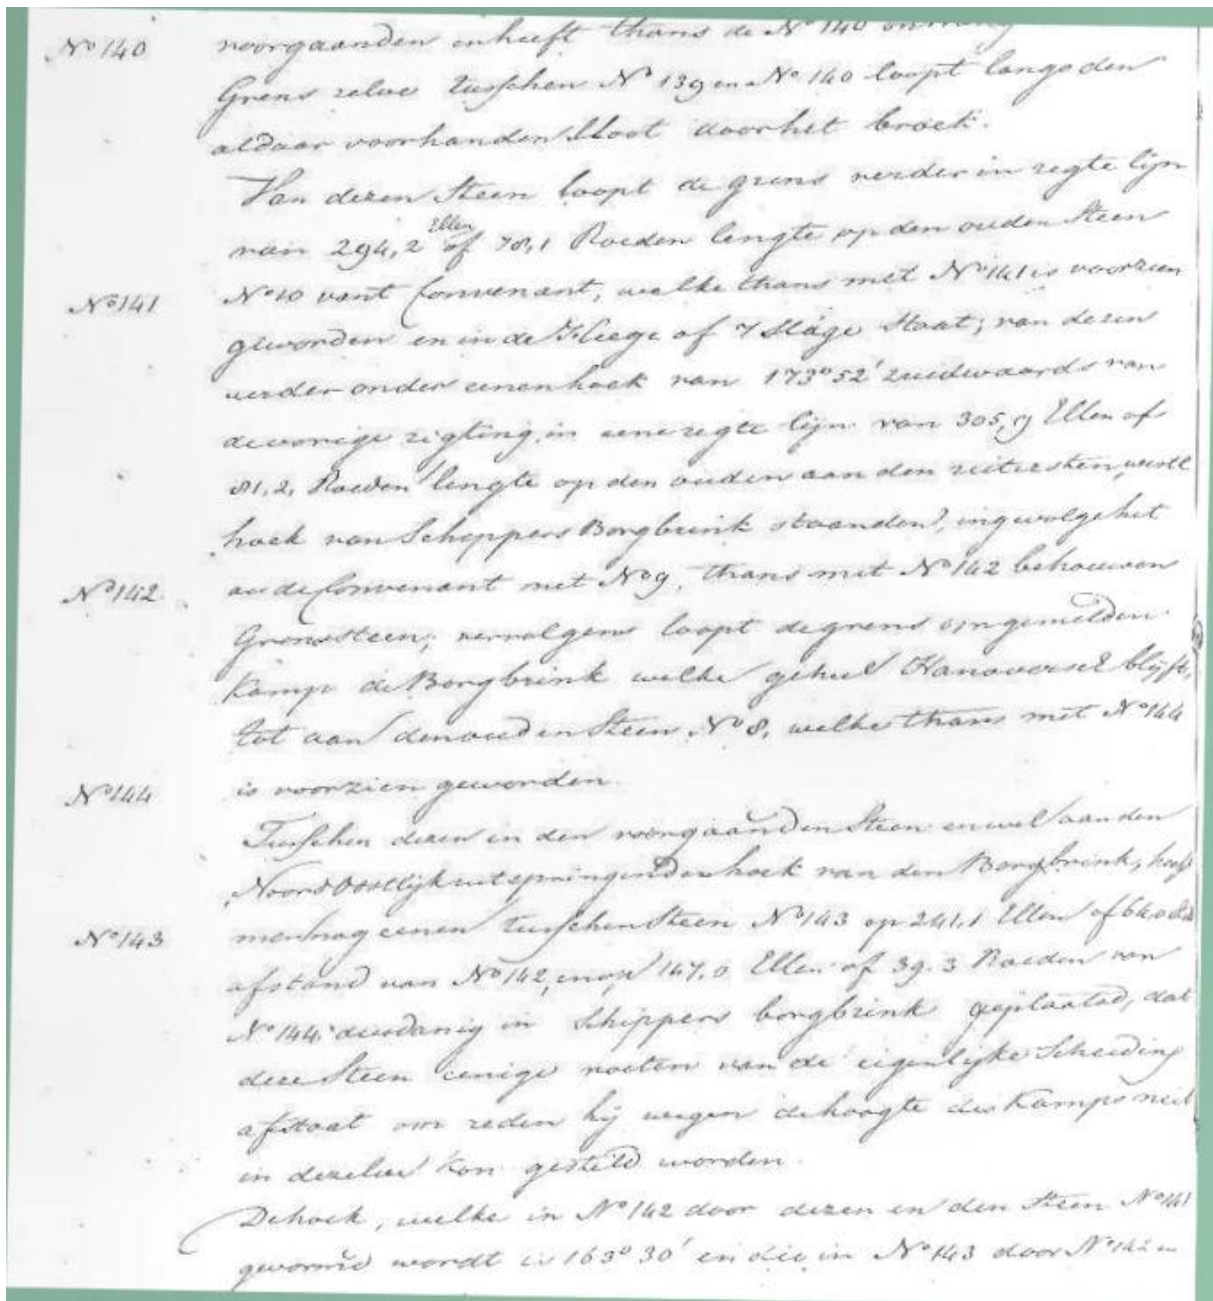 No 140 voorgaanden en heeft thans de No 140
Grens zelve tusschen No 139 en No 140 loopt langs den
aldaar voorhanden Sloot door het broek.
Van dezen Steen loopt de grens verder in regte lijn
van 294,2 Ellen of 78,1 Roeden lengte op den ouden Steen
No 141 No 10 vant Convenant, welke thans met No 141 is voorzien
geworden en in de Fleege of Slage Staat; van dezen
verder onder eenen hoek van 173° 52' zuidwaards van
de vorige rigting, in eene regte lijn van 305,9 Ellen of
81,2, Roeden lengte op den ouden aan den uitersten westl
hoek van Scheppers Borgbrink staanden, ingevolge het
No 142 oude Convenant met No 9, thans met No 142 behouwen
Grenssteen; vervolgens loopt de grens om gemelden
Kamp de Borgbrink welke geheel Hanoversch blijft,
tot aan den ouden Steen No 8, welke thans met No 144
No 144 is voorzien geworden.
Tusschen dezen en den voorgaanden Steen en wel aan den
Noord Oostlijk uitspringenden hoek van den Borgbrink, heeft
No 143 men nog eenen tusschen Steen No 143 op 241,1 Ellen of 64,0
afstand van No 142, en op 147,0 Ellen of 39.3 Roeden van
No 144 dusdanig in Schippers borgbrink geplaatsd, dat
deze Steen eenige voeten van de eigenlijke Scheiding
afstaat om reden hij wegen de hoogte des Kamps niet
in dezelve kon gesteld worden.
De hoek, welke in No 142 door dezen en den Steen No 141
gevormd wordt is 163° 30' en die in No 143 door No 142 en